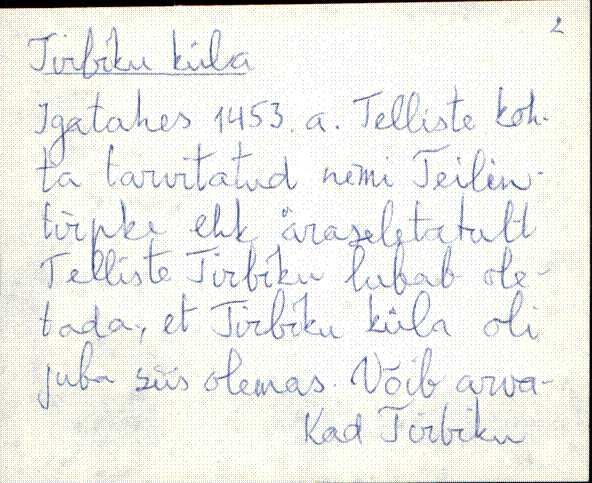 2
Tirbiku küla
Igatahes 1453. a. Telliste koh-
ta tarvitatud nimi Teilen-
tirpke ehk äraseletatult
Telliste Tirbiku lubab ole-
tada, et Tirbiku küla oli
juba siis olemas. Võib arva-
Kad Tirbiku